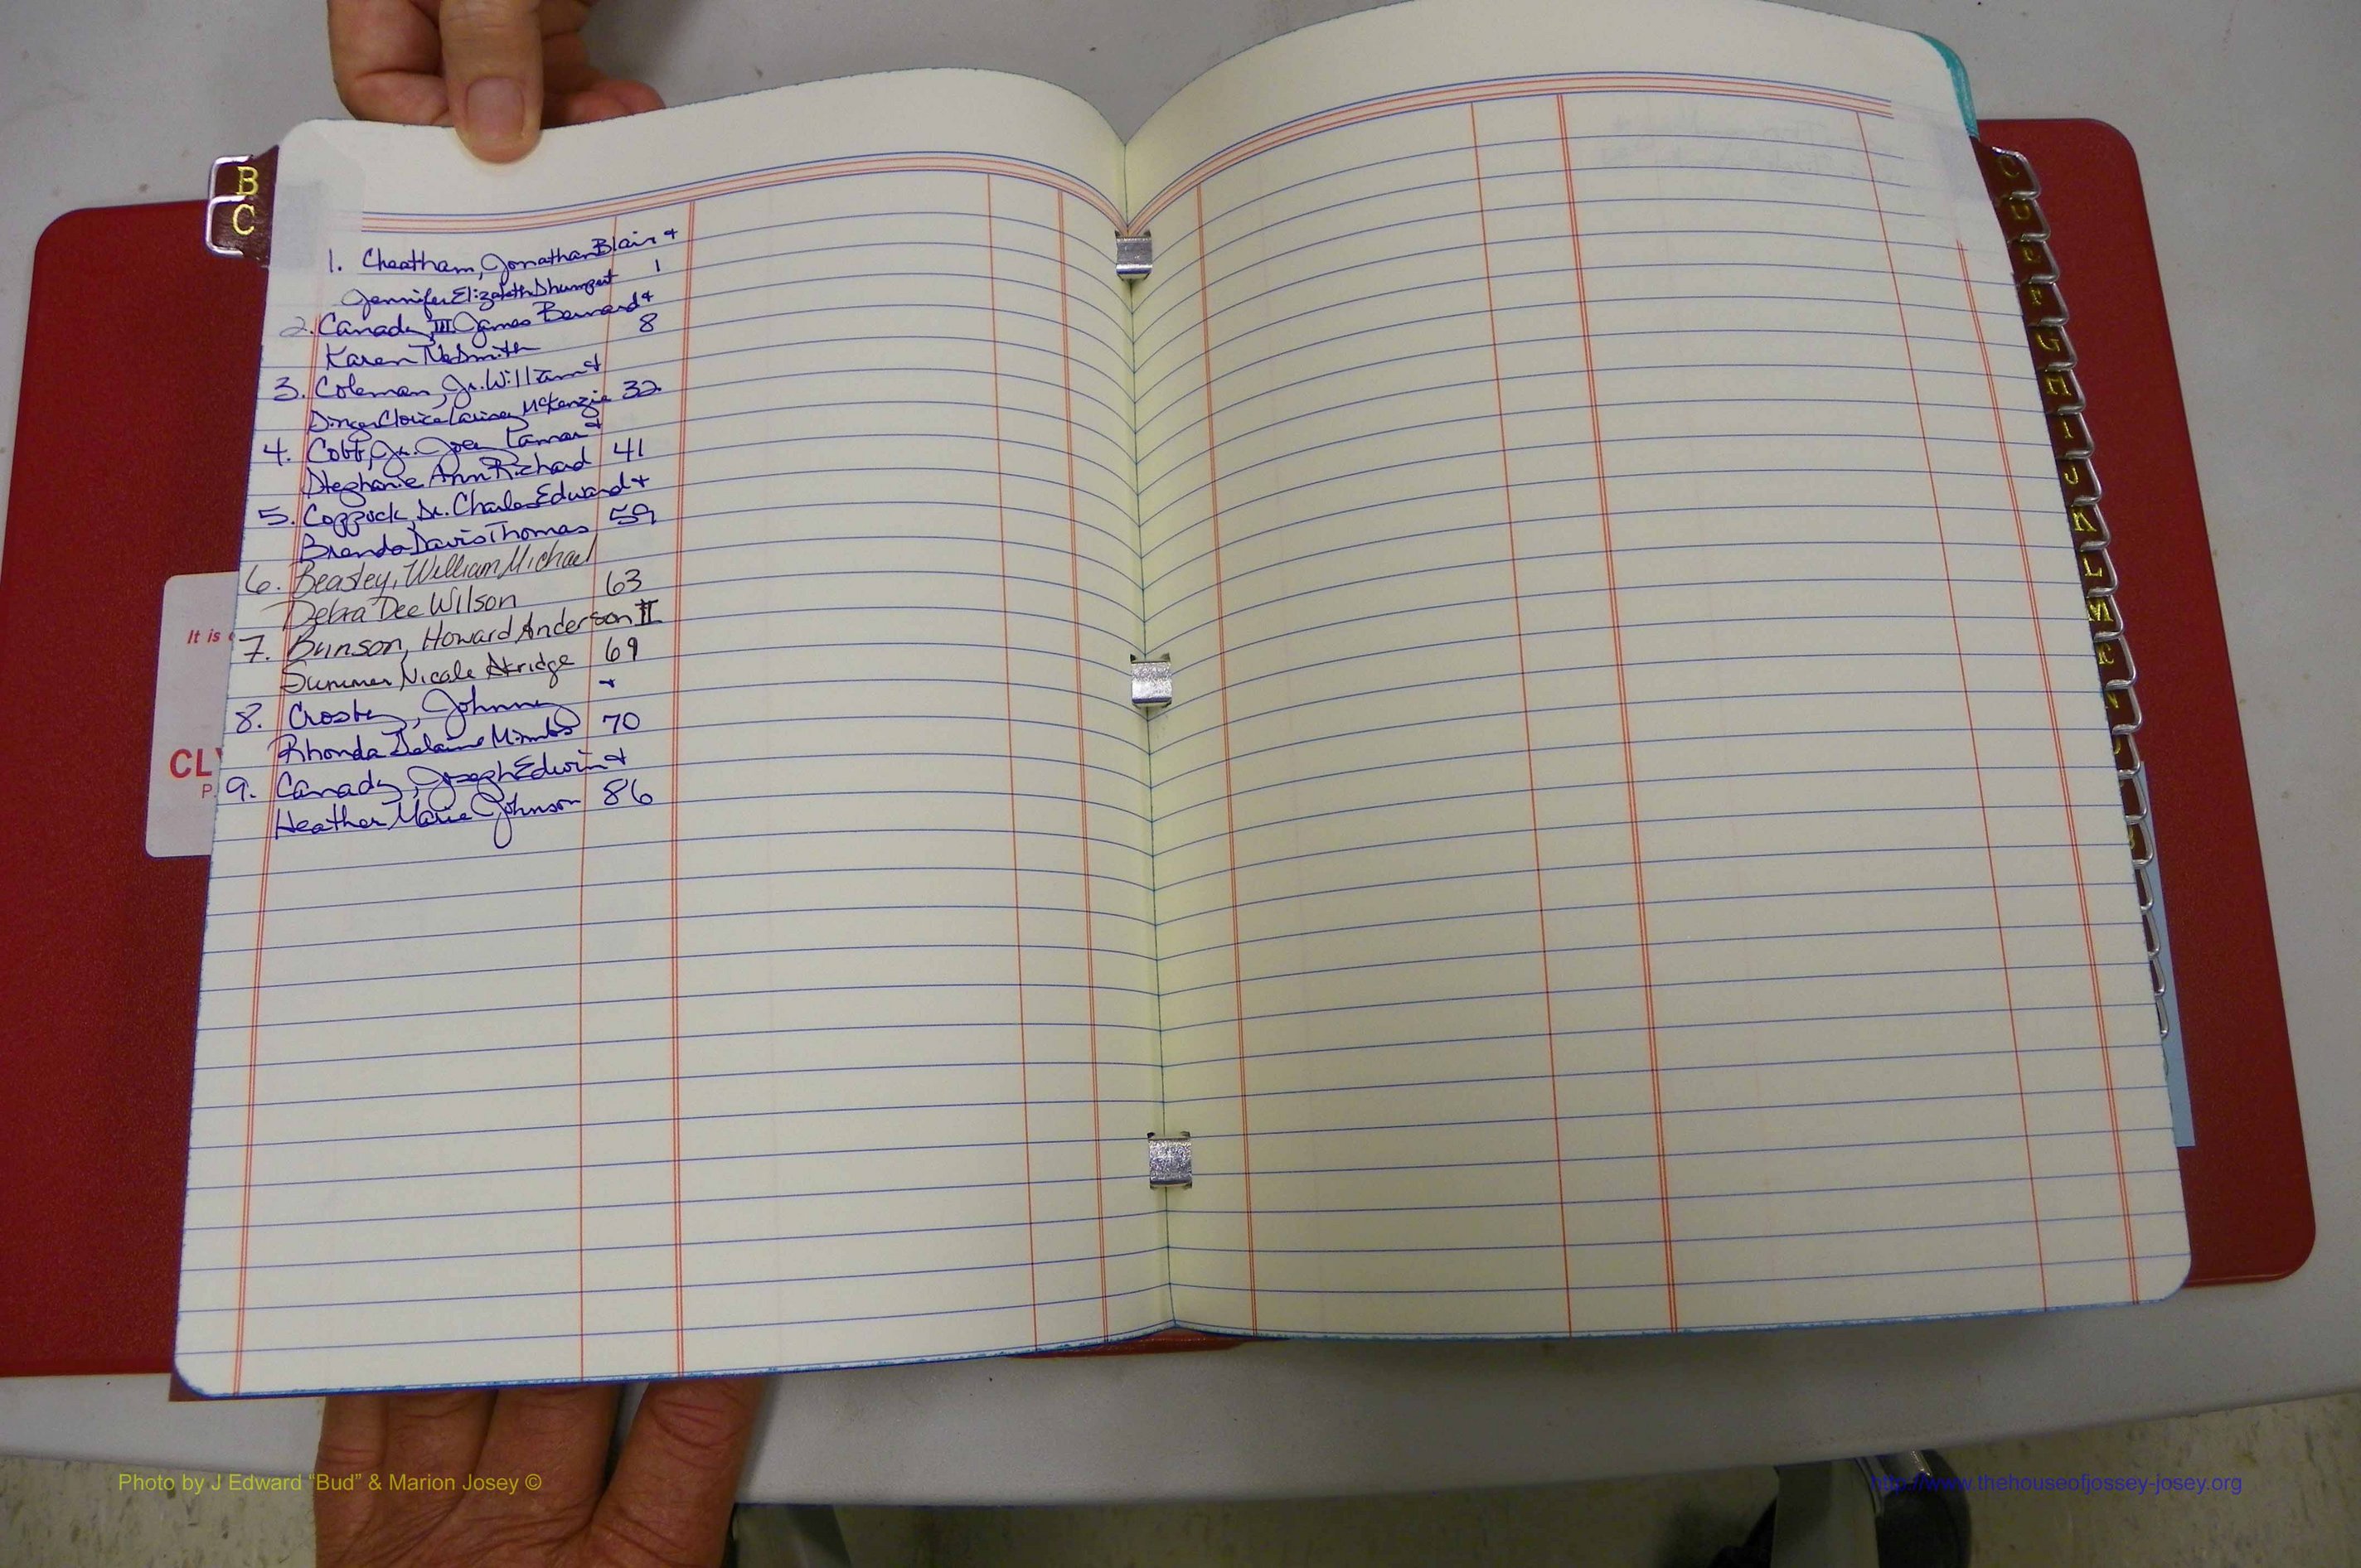 B
C
1. Cheatham, Jonathan Blair &
Jennifer Elizabeth Shumpert 1
2. Canady, III. James Bernard &
Karen NeSmith 8
3. Coleman, Jr. William &
McKenzie 32
4. Cobb, Jr. Joey Lamar &
Stephanie Ann Richard 41
5. Coppock, Sr. Charles Edward &
Brenda Davis Thomas 59
6. Beasley, William Michael
Debra Dee Wilson 63
7. Bunson, Howard Anderson II
Summer Nicole Akridge 69
&
8. Crosby, Johnny
Rhonda Delaine Mimbs 70
9. Canady, Joseph Edwin &
Heather Marie Johnson 86
It is
CLY
P.
C
D
E
F
G
H
I
J
K
L
M
Photo by J Edward “Bud” & Marion Josey ©
http://www.thehouseofjossey-josey.org